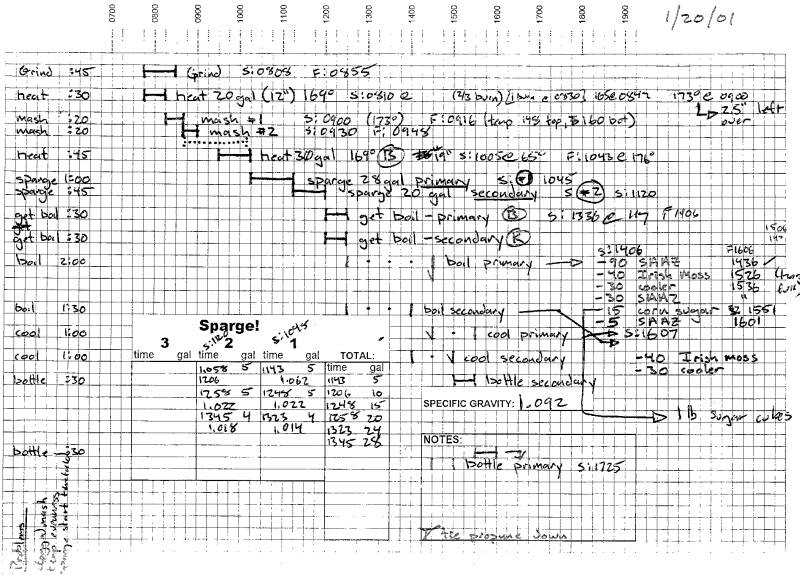 1/20/01
0700 0800 0900 1000 1100 1200 1300 1400 1500 1600 1700 1800 1900
Grind :45 Grind S:0808 F:0855
heat :30 heat 20 gal (12") 169° S:0810 @ (2/3 burn) 165@0847 173°@ 0900
2.5" left over
mash :20 mash #1 S: 0900 (173°) F:0916 (temp 148 top, 160 bot)
mash :20 mash #2 S:0930 F: 0948
heat :45 heat 30 gal 169° (B) 19" S:1005@ 65° F:1043@ 176°
sparge 1:00 sparge 28 gal primary S: #1 1045
sparge :45 sparge 20 gal secondary S #2 S:1120
get boil :30 get boil - primary (B) S: 1336 @ 147 F 1406
get boil :30 get boil - secondary (K)
boil 2:00 boil primary
S:1406 F1606
-90 SAAZ 1436
-40 Irish Moss 1526
-30 cooler 1536
-30 SAAZ "
-15 corn sugar 1551
-5 SAAZ 1601
boil 1:30 boil secondary
S:1607
cool 1:00 cool primary
cool 1:00 cool secondary
-40 Irish Moss
-30 cooler
bottle :30 bottle secondary
Sparge!
S:1120 S:1045
3 2 1
time gal time gal time gal TOTAL:
time gal
1.058 5 1143 5 1143 5
1206 1.062 1206 10
1258 5 1248 5 1248 15
1.022 1.022 1258 20
1345 4 1323 4 1323 24
1.018 1.014 1345 28
SPECIFIC GRAVITY: 1.092
1 lb sugar cubes
NOTES:
bottle :30 bottle primary S:1725
tie propane down
Problems